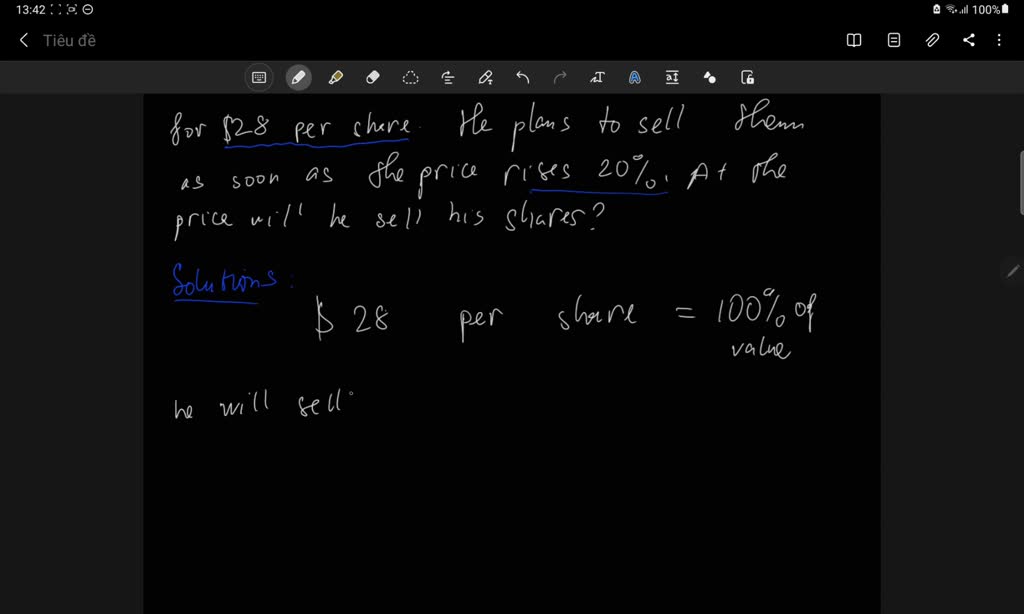 13:42
100%
Tiêu đề
for $28 per share. He plans to sell them
as soon as the price rises 20%. At the
price will he sell his shares?
Solutions:
$ 28 per share = 100% of
value
he will sell